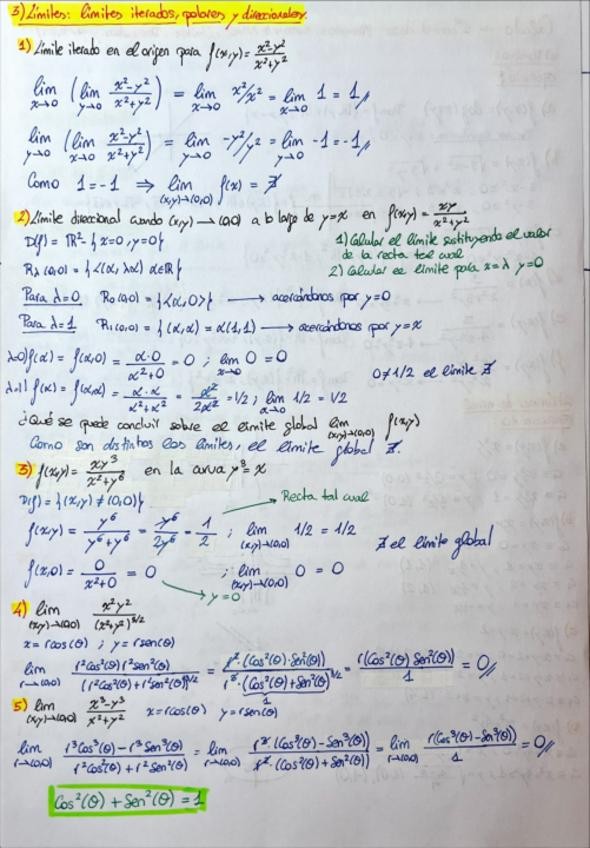 3) Límites: límites iterados, polares y direccionales.
1) Límite iterado en el origen para f(x,y) = (x²-y²)/(x²+y²)
lim x→0 (lim y→0 (x²-y²)/(x²+y²)) = lim x→0 x²/x² = lim x→0 1 = 1//
lim y→0 (lim x→0 (x²-y²)/(x²+y²)) = lim y→0 -y²/y² = lim y→0 -1 = -1//
Como 1=-1 ⇒ lim (x,y)→(0,0) f(x) = ∄
2) Límite direccional cuando (x,y) → (0,0) a lo largo de y=x en f(x,y) = xy/(x²+y²)
D(f) = ℝ² - { x=0, y=0 }
1) Calcular el límite sustituyendo el valor
de la recta tal cual
Rλ (0,0) = { L(α, λα) α∈ℝ }
2) Calcular el límite para x=λ y=0
Para λ=0 R₀ (0,0) = { L(α, 0> } → acercándonos por y=0
Para λ=1 R₁ (0,0) = { (α, α) = α(1,1) } → acercándonos por y=x
λ=0) f(α) = f(α,0) = α·0/(α²+0) = 0 ; lim x→0 0 = 0
0≠1/2 el límite ∄
λ=1) f(α) = f(α,α) = α·α/(α²+α²) = α²/2α² = 1/2 ; lim α→0 1/2 = 1/2
¿Qué se puede concluir sobre el límite global lim (x,y)→(0,0) f(x,y)
Como son distintos los límites, el límite global ∄.
3) f(x,y) = xy³/(x²+y⁶) en la curva y³ = x
D(f) = { (x,y) ≠ (0,0) }
Recta tal cual
f(x,y) = y⁶/(y⁶+y⁶) = y⁶/2y⁶ = 1/2 ; lim (x,y)→(0,0) 1/2 = 1/2
∄ el límite global
f(x,0) = 0/(x²+0) = 0 ; lim (x,y)→(0,0) 0 = 0
y=0
4) lim (x,y)→(0,0) x²y²/(x²+y²)^3/2
x = rcos(θ) ; y = rsen(θ)
lim r→(0,0) r²Cos²(θ) r²sen²(θ)/(r²Cos²(θ) + r²sen²(θ))^3/2 = r⁴·(Cos²(θ)·Sen²(θ))/r³·(Cos²(θ)+Sen²(θ))^3/2 = r(Cos²(θ) Sen²(θ))/1 = 0//
5) lim (x,y)→(0,0) (x³-y³)/(x²+y²) x=rcos(θ) y=rsen(θ)
lim r→(0,0) (r³Cos³(θ) - r³Sen³(θ))/(r²Cos²(θ) + r²Sen²(θ)) = lim r→(0,0) r³·(Cos³(θ) - Sen³(θ))/r²·(Cos²(θ) + Sen²(θ)) = lim r→(0,0) r(Cos³(θ) - Sen³(θ))/1 = 0//
Cos²(θ) + Sen²(θ) = 1